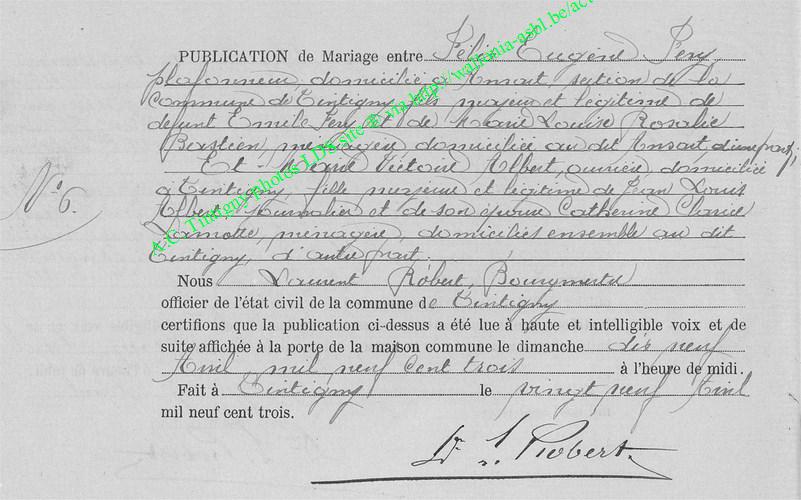 PUBLICATION de Mariage entre Félix Eugène Pery,
plafonneur, domicilié à Ansart, section de la
Commune de Tintigny, fils majeur et légitime de
defunt Emile Pery et de Marie Louise Rosalie
menagère, domiciliée au dit Ansart, d'une part;
Et Marie Victoire Albert, ouvrière, domiciliée
à Tintigny, fille majeure et légitime de Jean Louis
Albert, Journalier et de son épouse Catherine
Lamotte, ménagère, domiciliés ensemble au dit
Tintigny, d'autre part.
N° 6.
Nous Laurent Robert, Bourgmestre
officier de l'état civil de la commune de Tintigny
certifions que la publication ci-dessus a été lue à haute et intelligible voix et de
suite affichée à la porte de la maison commune le dimanche dix neuf
Avril, mil neuf cent trois à l'heure de midi.
Fait à Tintigny le vingt neuf Avril
mil neuf cent trois.
L. Robert
A.C. Tintigny-photos LDS, site @ via http://wallonia-asbl.be/ac